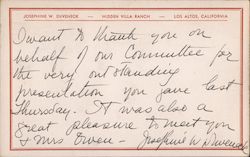 JOSEPHINE W. DUVENECK — HIDDEN VILLA RANCH — LOS ALTOS, CALIFORNIA
I want to thank you on
behalf of our Committee for
the very outstanding
presentation you gave last
Thursday. It was also a
great pleasure to meet you
& Mrs Owen —
Josephine W Duveneck